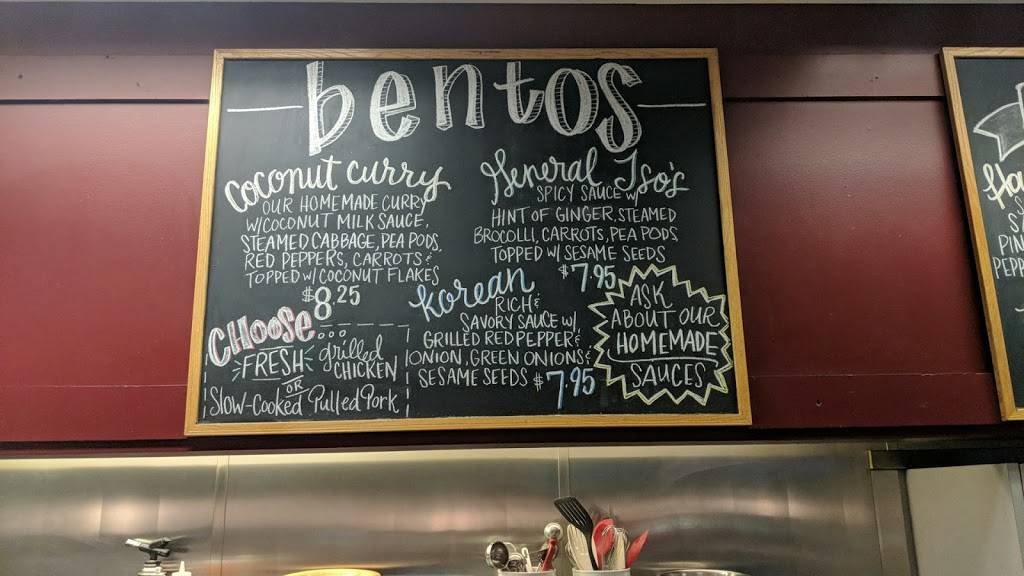 bentos
coconut curry
OUR HOMEMADE CURRY
W/COCONUT MILK SAUCE,
STEAMED CABBAGE, PEA PODS,
RED PEPPERS, CARROTS &
TOPPED W/ COCONUT FLAKES
$8.25
General Tso's
SPICY SAUCE W/
HINT OF GINGER, STEAMED
BROCOLLI, CARROTS, PEA PODS,
TOPPED W/ SESAME SEEDS
$7.95
korean
RICH &
SAVORY SAUCE W/
GRILLED RED PEPPER &
ONION, GREEN ONIONS &
SESAME SEEDS $7.95
CHOOSE...
FRESH grilled
CHICKEN
OR
Slow-Cooked Pulled Pork
ASK
ABOUT OUR
HOMEMADE
SAUCES